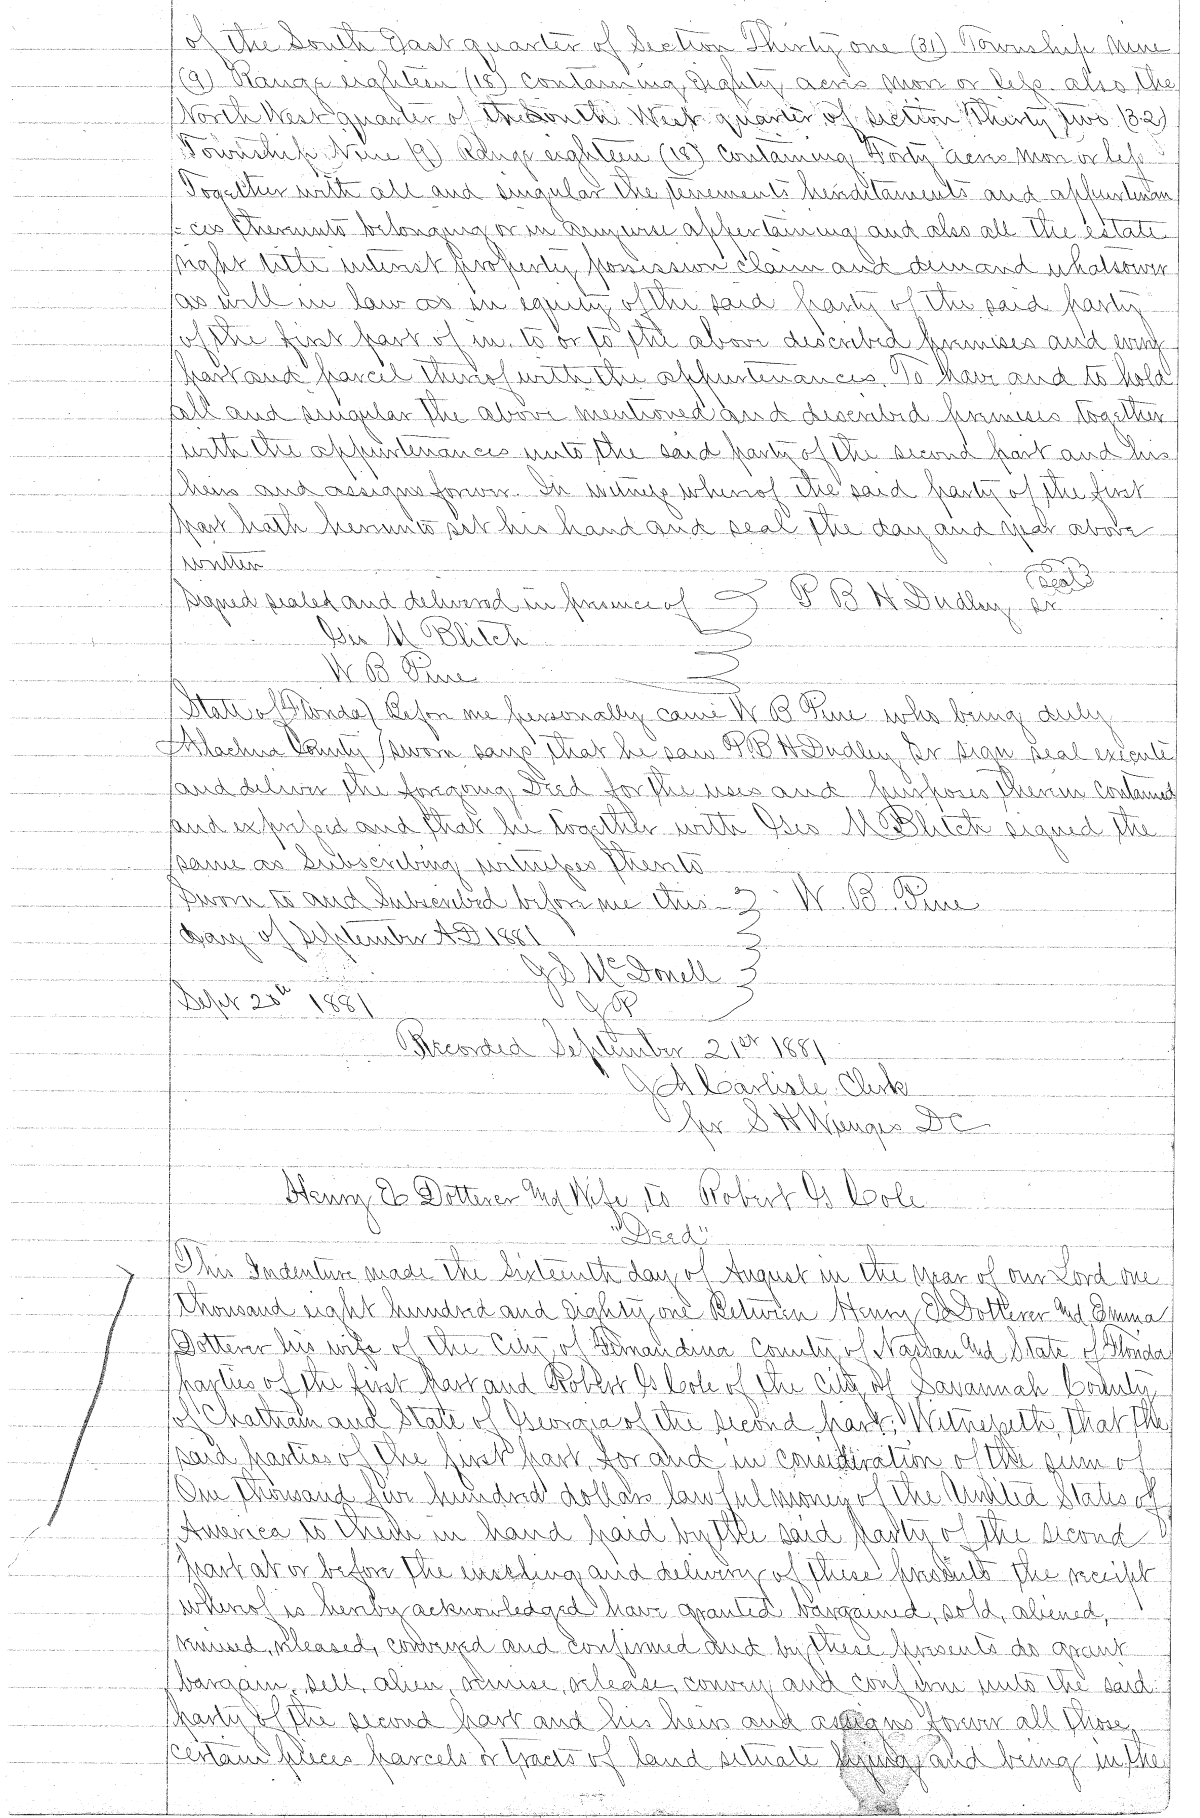 of the South East quarter of Section Thirty one (31) Township Nine
(9) Range eighteen (18) containing Eighty acres more or less. also the
North West quarter of the South West quarter of section Thirty two (32)
Township Nine (9) Range eighteen (18) containing Forty acres more or less
Together with all and singular the tenements hereditaments and appurtenan
=ces thereunto belonging or in anywise appertaining and also all the estate
right title interest property possession claim and demand whatsoever
as well in law as in equity of the said party of the said party
of the first part of in. to or to the above described premises and every
part and parcel thereof with the appurtenances. To have and to hold
all and singular the above mentioned and described premises together
with the appurtenances unto the said party of the second part and his
heirs and assigns forever. In witness whereof the said party of the first
part hath hereunto set his hand and seal the day and year above
written
Signed sealed and delivered in presence of P B H Dudley Sr seal
Geo M Blitch
W B Pine
State of Florida) Before me personally came W B Pine who being duly
Alachua County) sworn says that he saw P. B H Dudley Sr sign seal execute
and deliver the foregoing Deed for the uses and purposes therein contained
and expressed and that he together with Geo M Blitch signed the
same as Subscribing witnesses thereto
Sworn to and Subscribed before me this W. B. Pine
day of September A.D 1881
J S McDonell
Sept 20th 1881 J P
Recorded September 21st 1881
J A Carlisle Clerk
per S H Wienges D C
Henry E Dotterer and Wife to Robert G Cole
"Deed"
This Indenture made the Sixteenth day of August in the year of our Lord one
thousand eight hundred and Eighty one Between Henry E Dotterer and Emma
Dotterer his wife of the City of Fernandina County of Nassau and State of Florida
parties of the first part and Robert G Cole of the City of Savannah County
of Chatham and State of Georgia of the second part, Witnesseth, that the
said parties of the first part for and in consideration of the sum of
One thousand five hundred dollars lawful money of the United States of
America to them in hand paid by the said party of the second
part at or before the ensealing and delivery of these presents the receipt
whereof is hereby acknowledged have granted bargained, sold, aliened,
remised, released, conveyed and confirmed and by these presents do grant
bargain, sell, alien, remise, release, convey and confirm unto the said
party of the second part and his heirs and assigns forever all those
certain pieces parcels or tracts of land situate lying and being in the